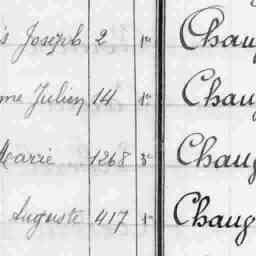 s Joseph 2 1re Chau
me Julien 14 1re Chau
Marie 1268 3e Chaug
Auguste 417 1re Chaug